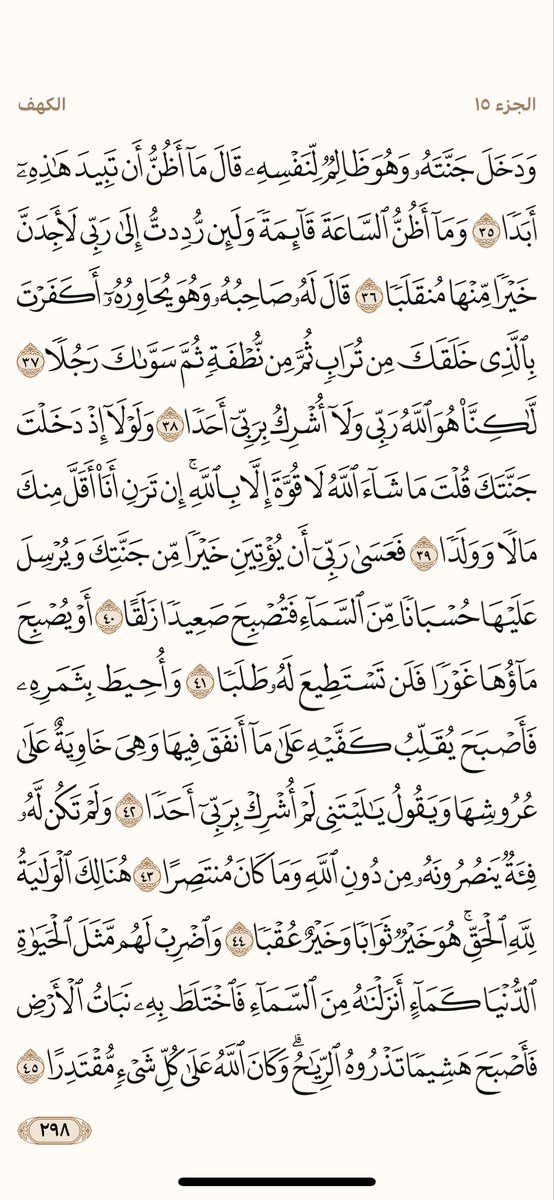 الجزء ١٥
الكهف
وَدَخَلَ جَنَّتَهُۥ وَهُوَ ظَالِمٞ لِّنَفۡسِهِۦ قَالَ مَآ أَظُنُّ أَن تَبِيدَ هَٰذِهِۦٓ
أَبَدٗا ٣٥ وَمَآ أَظُنُّ ٱلسَّاعَةَ قَآئِمَةٗ وَلَئِن رُّدِدتُّ إِلَىٰ رَبِّي لَأَجِدَنَّ
خَيۡرٗا مِّنۡهَا مُنقَلَبٗا ٣٦ قَالَ لَهُۥ صَاحِبُهُۥ وَهُوَ يُحَاوِرُهُۥٓ أَكَفَرۡتَ
بِٱلَّذِي خَلَقَكَ مِن تُرَابٖ ثُمَّ مِن نُّطۡفَةٖ ثُمَّ سَوَّىٰكَ رَجُلٗا ٣٧
لَّٰكِنَّا۠ هُوَ ٱللَّهُ رَبِّي وَلَآ أُشۡرِكُ بِرَبِّيٓ أَحَدٗا ٣٨ وَلَوۡلَآ إِذۡ دَخَلۡتَ
جَنَّتَكَ قُلۡتَ مَا شَآءَ ٱللَّهُ لَا قُوَّةَ إِلَّا بِٱللَّهِۚ إِن تَرَنِ أَنَا۠ أَقَلَّ مِنكَ
مَالٗا وَوَلَدٗا ٣٩ فَعَسَىٰ رَبِّيٓ أَن يُؤۡتِيَنِ خَيۡرٗا مِّن جَنَّتِكَ وَيُرۡسِلَ
عَلَيۡهَا حُسۡبَانٗا مِّنَ ٱلسَّمَآءِ فَتُصۡبِحَ صَعِيدٗا زَلَقًا ٤٠ أَوۡ يُصۡبِحَ
مَآؤُهَا غَوۡرٗا فَلَن تَسۡتَطِيعَ لَهُۥ طَلَبٗا ٤١ وَأُحِيطَ بِثَمَرِهِۦ
فَأَصۡبَحَ يُقَلِّبُ كَفَّيۡهِ عَلَىٰ مَآ أَنفَقَ فِيهَا وَهِيَ خَاوِيَةٌ عَلَىٰ
عُرُوشِهَا وَيَقُولُ يَٰلَيۡتَنِي لَمۡ أُشۡرِكۡ بِرَبِّيٓ أَحَدٗا ٤٢ وَلَمۡ تَكُن لَّهُۥ
فِئَةٞ يَنصُرُونَهُۥ مِن دُونِ ٱللَّهِ وَمَا كَانَ مُنتَصِرًا ٤٣ هُنَالِكَ ٱلۡوَلَٰيَةُ
لِلَّهِ ٱلۡحَقِّۚ هُوَ خَيۡرٞ ثَوَابٗا وَخَيۡرٌ عُقۡبٗا ٤٤ وَٱضۡرِبۡ لَهُم مَّثَلَ ٱلۡحَيَوٰةِ
ٱلدُّنۡيَا كَمَآءٍ أَنزَلۡنَٰهُ مِنَ ٱلسَّمَآءِ فَٱخۡتَلَطَ بِهِۦ نَبَاتُ ٱلۡأَرۡضِ
فَأَصۡبَحَ هَشِيمٗا تَذۡرُوهُ ٱلرِّيَٰحُۗ وَكَانَ ٱللَّهُ عَلَىٰ كُلِّ شَيۡءٖ مُّقۡتَدِرًا ٤٥
٢٩٨